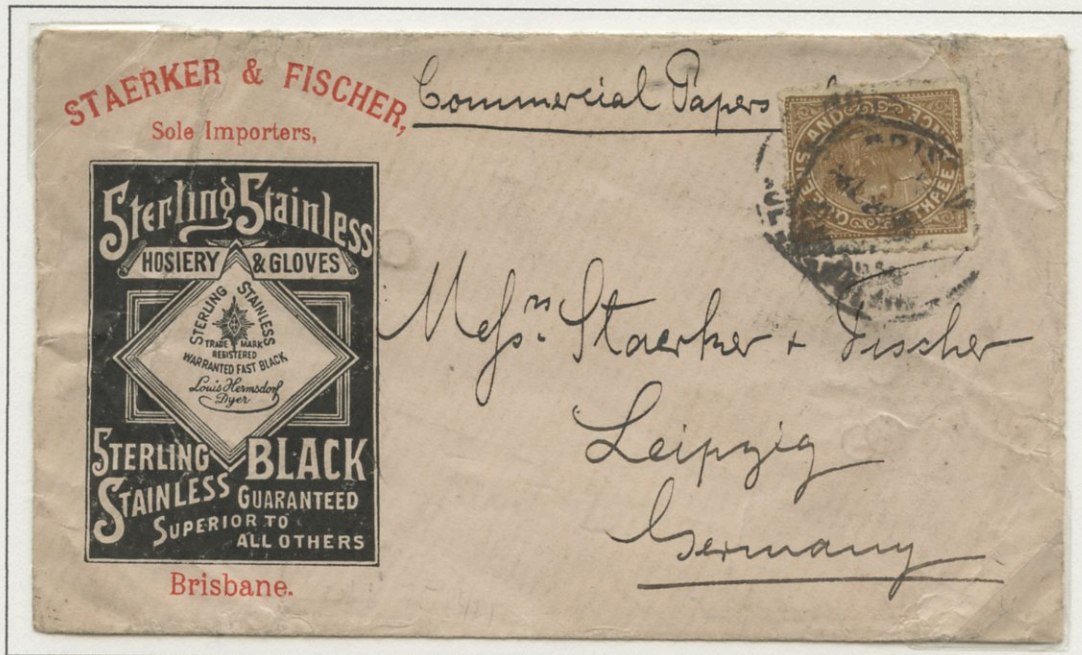 STAERKER & FISCHER,
Sole Importers,
Sterling Stainless
HOSIERY & GLOVES
STERLING STAINLESS
TRADE MARK
REGISTERED
WARRANTED FAST BLACK
Louis Hermsdorf
Dyer
STERLING BLACK
STAINLESS GUARANTEED
SUPERIOR TO
ALL OTHERS
Brisbane.
Commercial Papers
QUEENSLAND
THREE PENCE
Messrs. Staerker + Fischer
Leipzig
Germany